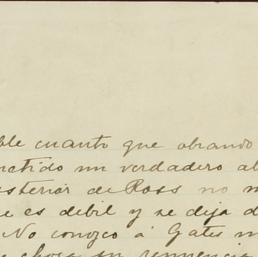 ble cuanto que obrando
metido un verdadero ab
isterior de Ross no m
ue es debil y se deja d
No conozco á Gates m
su renuncia